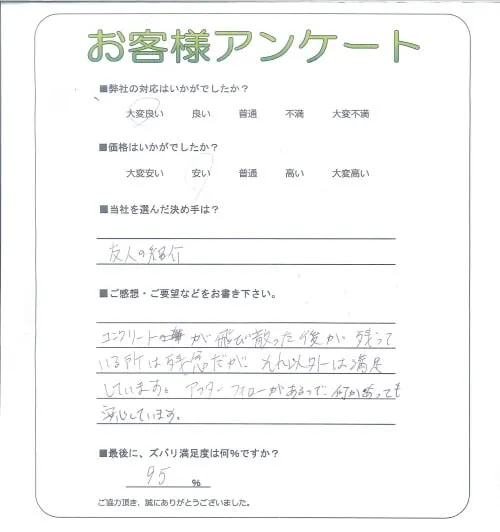 お客様アンケート
■弊社の対応はいかがでしたか？
大変良い 良い 普通 不満 大変不満
■価格はいかがでしたか？
大変安い 安い 普通 高い 大変高い
■当社を選んだ決め手は？
友人の紹介
■ご感想・ご要望などをお書き下さい。
コンクリートの が飛び散った後が残って
いる所は残念だが、それ以外は満足
しています。アフターフォローがあるので、何かあっても
安心しています。
■最後に、ズバリ満足度は何％ですか？
95 ％
ご協力頂き、誠にありがとうございました。